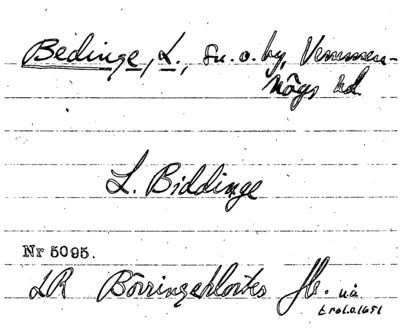 Bedinge, L., sn. o. by, Vemmen-
högs hd.
L. Biddinge
Nr 5095.
LR Börringeklosters Jb.